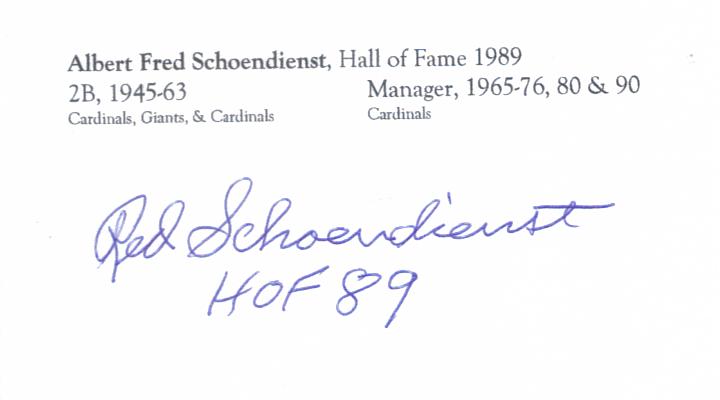 Albert Fred Schoendienst, Hall of Fame 1989
2B, 1945-63 Manager, 1965-76, 80 & 90
Cardinals, Giants, & Cardinals Cardinals
Red Schoendienst
HOF 89